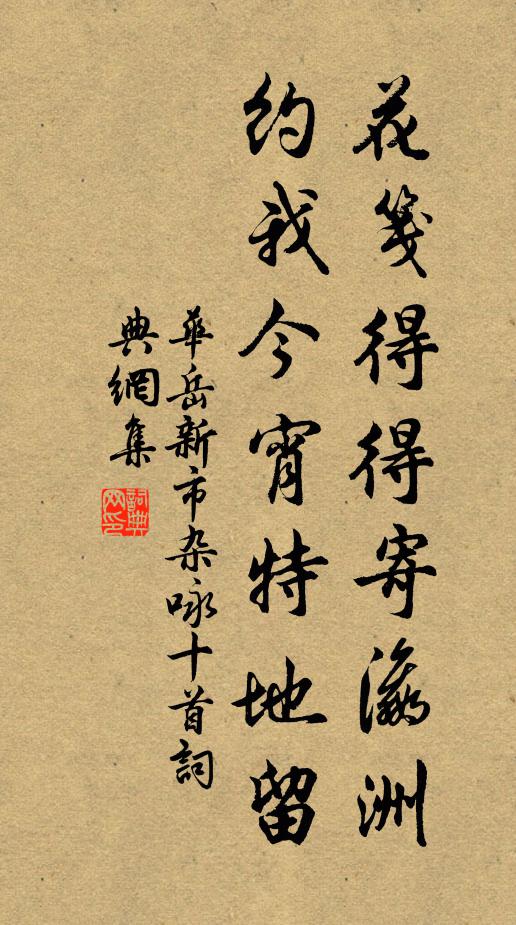 花箋得得寄瀛洲
約我今宵特地留
華岳新市杂咏十首詞
典網集
詞典
网印